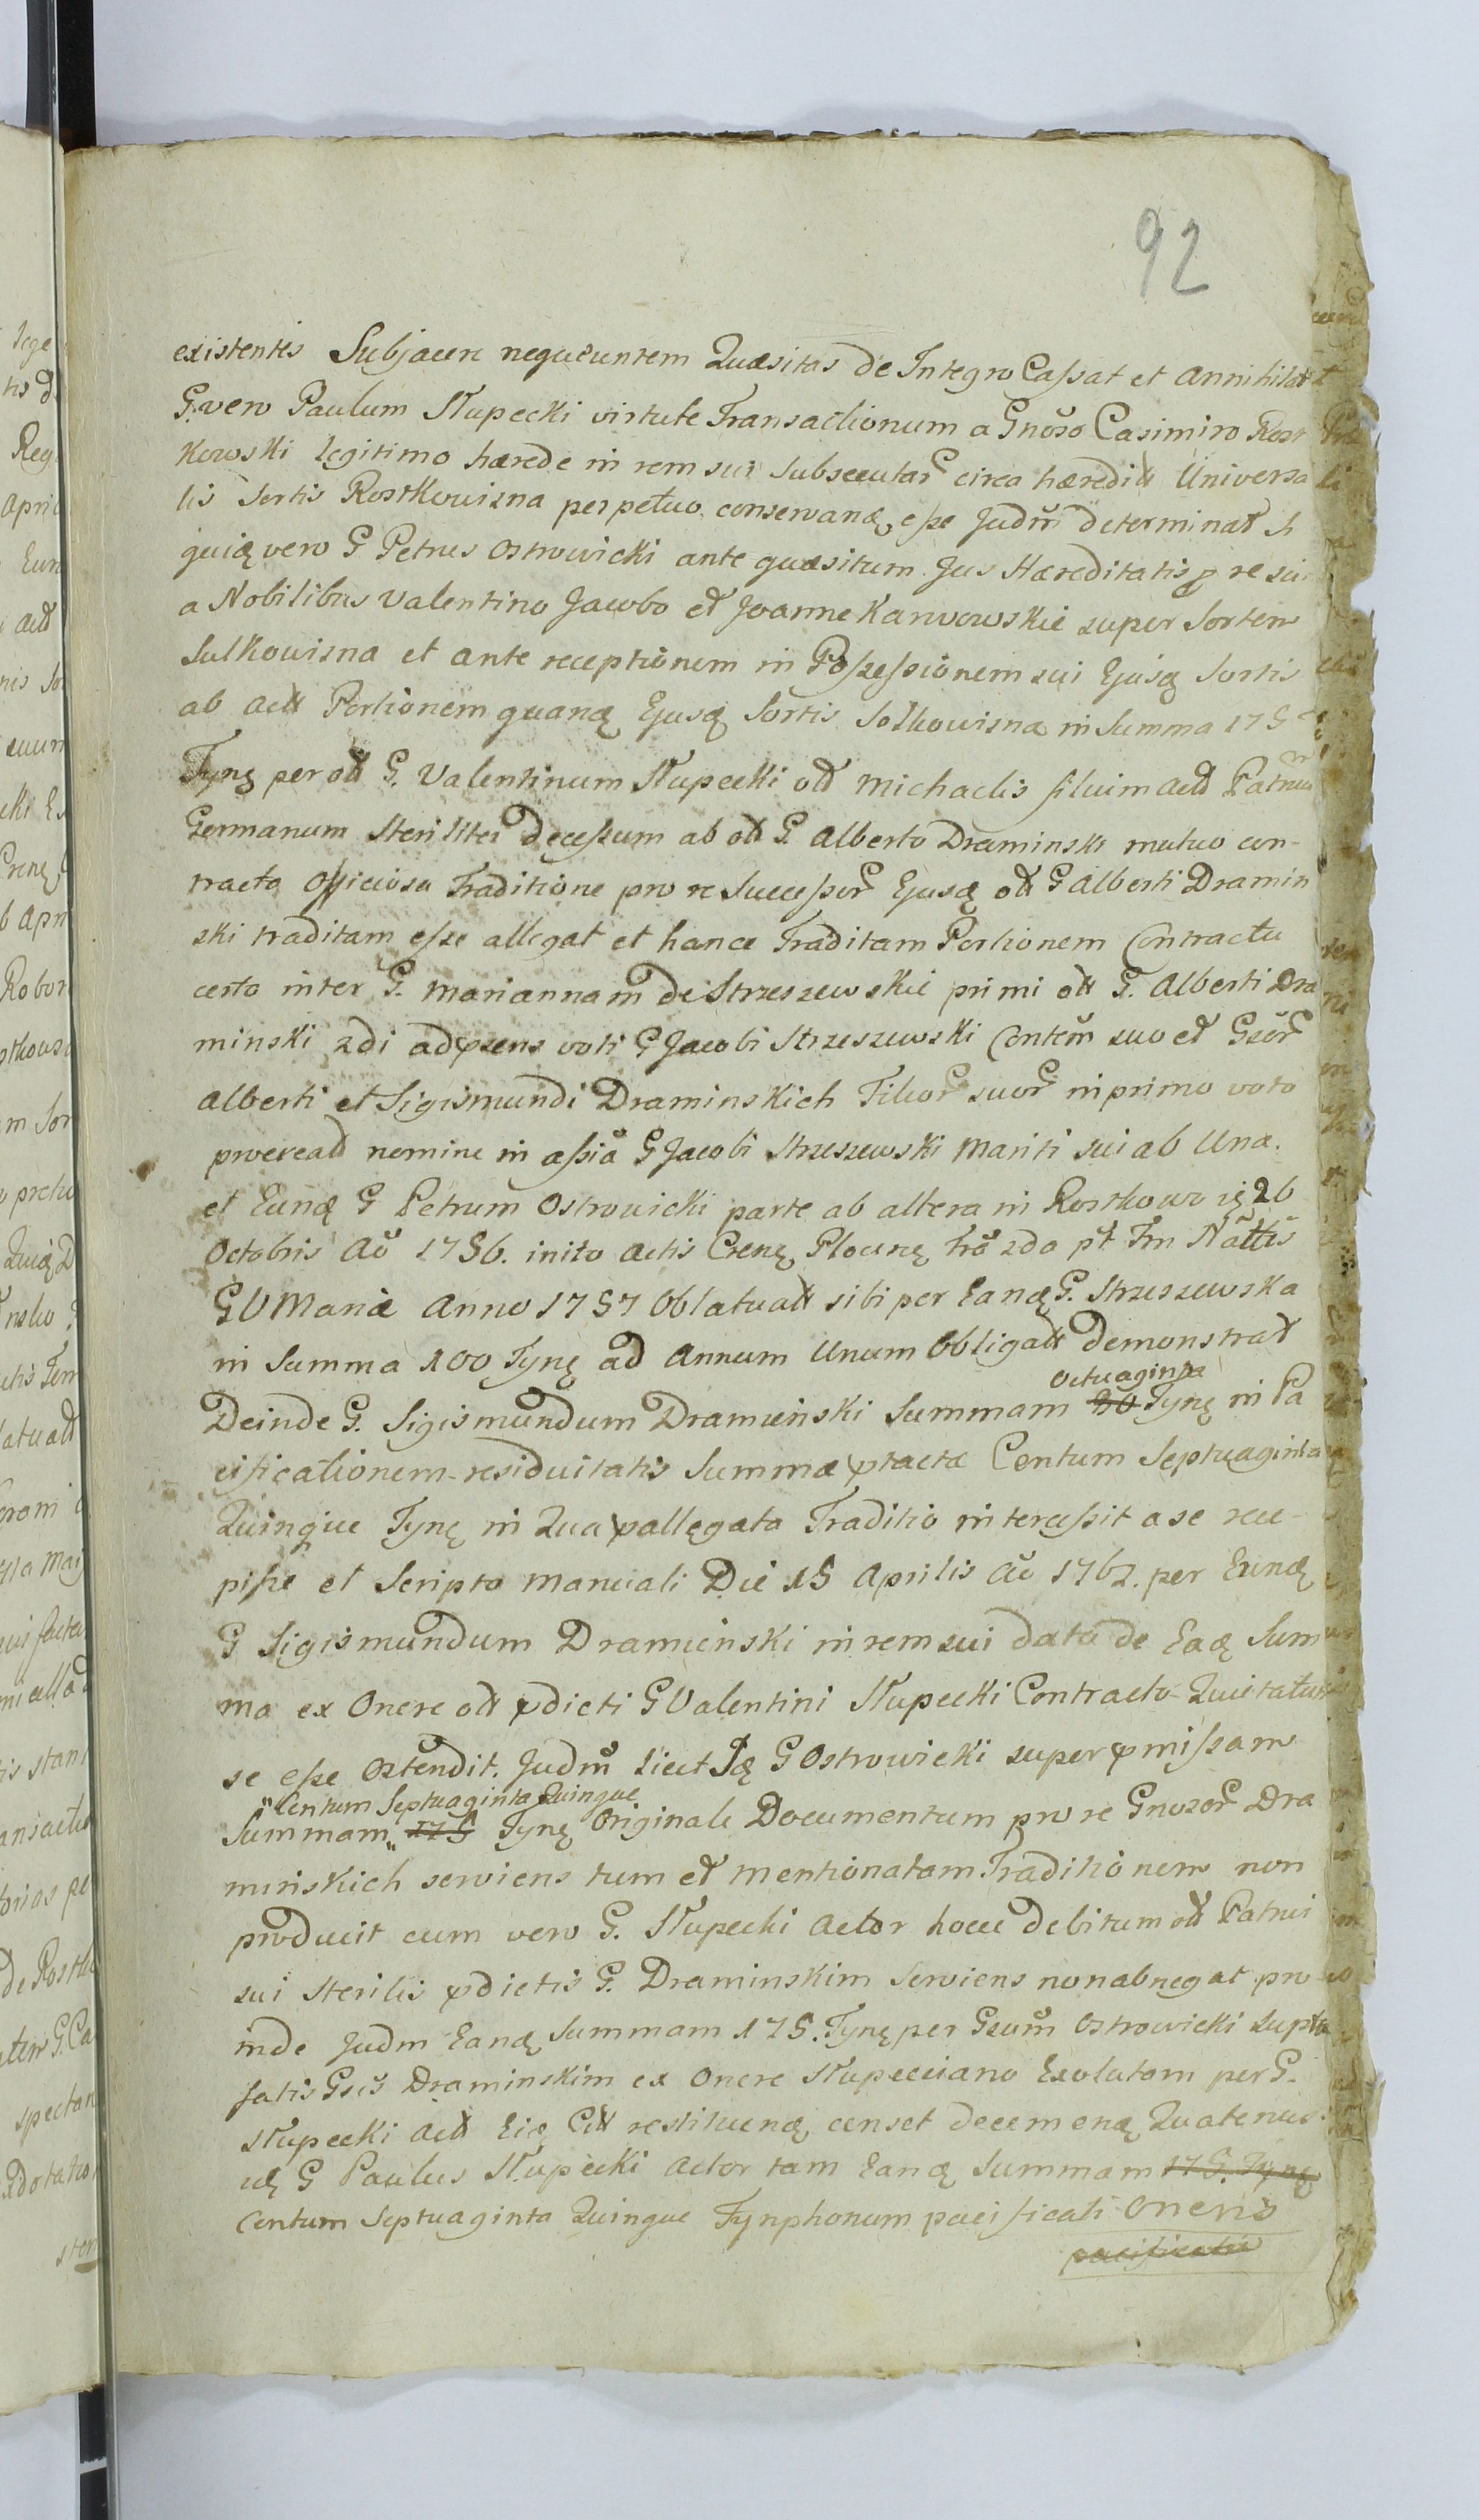 92
existentis Subjacere nequeuntem Quæsitas de Integro Cassat et Annihilat
G. vero Paulum Słupecki virtute Transactionum a Gnoso Casimiro Rost
kowski legitimo hærede in rem sui subsecutar circa hæredit Universa
lis Sortis Rostkowizna perpetuo conservanḑ esse Judm determinat si
quiḑ vero G Petrus Ostrowicki ante quæsitum Jus Hæreditatis p re sui
a Nobilibus Valentino Jacobo et Joanne Karwowskie super Sortem
Sulkowizna et ante receptionem in Possessionem sui Ejusḑ Sortis
ab act Portionem quanḑ Ejusḑ Sortis Solkowizna in Summa 175
Tynf per olt G. Valentinum Słupecki olt Michaelis filium act Patruu
Germanum Steriliter decessum ab olt G. Alberto Draminski mutuo con-
tracta Officiosa Traditione pro re Successor Ejusḑ olt G Alberti Dramin
ski traditam esse allegat et hance Traditam Portionem Contractu
certo inter G. Mariannam de Strzeszewskie primi olt G. Alberti Dra
minski 2di adpræns voti G Jacobi Strzeszewski Contem suo et Gsor
Alberti et Sigismundi Draminskich Filior suor in primo voto
procreatt nomine in assia G Jacobi Strzeszewski Mariti sui ab Una.
et Eunḑ G Petrum Ostrowicki parte ab altera in Rostkowo 26
Octobris Ao 1756. inito Actis Crenş Plocenş fra 2da pt Fm Nattis
G V Mariæ Anno 1757 Oblatuatt sibi per Eanḑ G. Strzeszewska
in Summa 100 Tynf ad Annum Unum Obligatt demonstrat
Octuaginta
Deinde G. Sigismundum Dramieński Summam 80 Tynf in Pa
cificationem residuitatis Summæ ptactæ Centum Septuaginta
Quinque Tynf in Qua pallegata Traditio intercessit a se rece-
pisse et Scripto Manuali Die 15 Aprilis Ao 1762. per Eunḑ
G Sigismundum Dramienski in rem sui dato de Eaḑ Sum
ma ex Onere olt pdicti G Valentini Słupecki Contracto Quietatum
se esse Ostendit. Judm licet Iḑ G Ostrowicki super pmissam
"Centum Septuaginta Quinque
Summam" 175 Tynf Originale Documentum pro re Gnosor Dra
minskich serviens tum et mentionatam Traditionem non
producit cum vero G. Słupecki Actor hocce debitum olt Patrui
sui Sterilis pdictis G. Draminskim serviens non abnegat pro
inde Judm Eanḑ Summam 175. Tynf per Gsum Ostrowicki supra
fatis Gsis Draminskim ex Onere Słupecciano Exolutam per G.
Słupecki Act Eiḑ Citt restituenḑ censet decernenḑ Quatenus
iḑ G Paulus Słupecki Actor tam Eanḑ Summam 175. Tynf
Centum Septuaginta Quinque Tynphonum pacificati Oneris
pacificatis